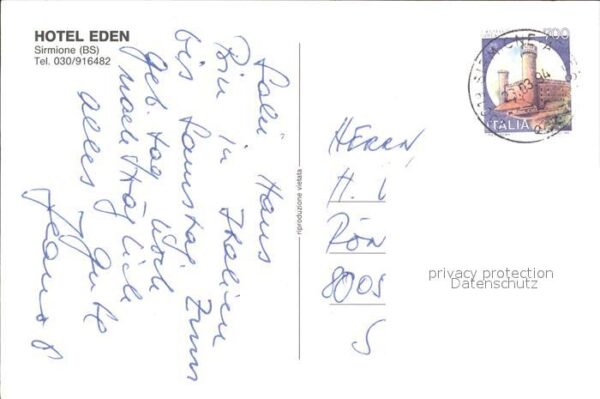 HOTEL EDEN
Sirmione (BS)
Tel. 030/916482
Salü Hans
Bin in Italien
bis Samstag Zum
Geb. tag
nachträglich
alles Gute
riproduzione vietata
700
ITALIA
HERRN
H. L
RÖN
8005
S
privacy protection
Datenschutz